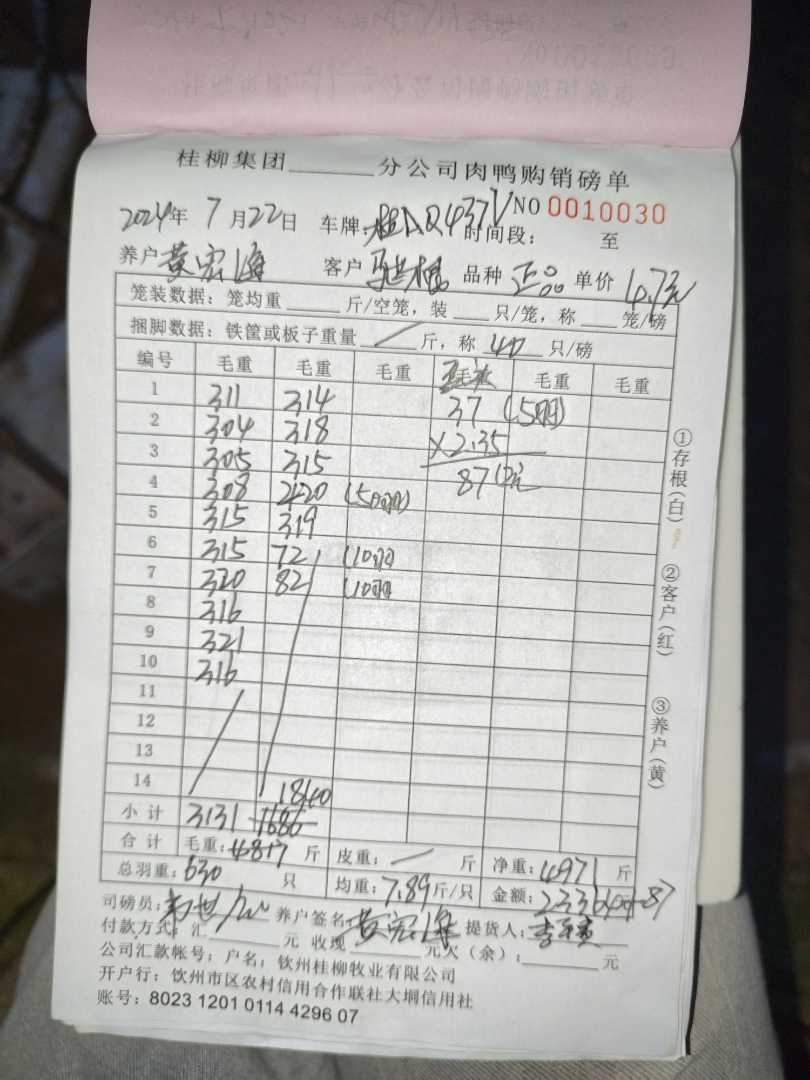 桂柳集团______分公司肉鸭购销磅单
2024年 7月22日 车牌: Q437V NO 0010030
时间段: 至
养户 黄宏海 客户 品种 正品 单价 4.7元
笼装数据: 笼均重____斤/空笼, 装___只/笼, 称___笼/磅
捆脚数据: 铁筐或板子重量 / 斤, 称 40 只/磅
编号 毛重 毛重 毛重 毛重 毛重
1 311 314 37 (5羽)
2 304 318 ×2.35
3 305 315 87元
4 308 420 (50羽)
5 315 319
6 315 72 (10羽)
7 320 82 (10羽)
8 316
9 321
10 316
11
12
13
14 1840
小计 3131 1686
合计 毛重: 4817 斤 皮重: / 斤 净重: 4971 斤
总羽重: 630 只 均重: 7.89 斤/只 金额:
司磅员: 养户签名 黄宏海 提货人:
付款方式: 汇____元 收现____元欠(余):____元
公司汇款帐号: 户名: 钦州桂柳牧业有限公司
开户行: 钦州市区农村信用合作联社大垌信用社
账号: 8023 1201 0114 4296 07
①存根(白)
②客户(红)
③养户(黄)